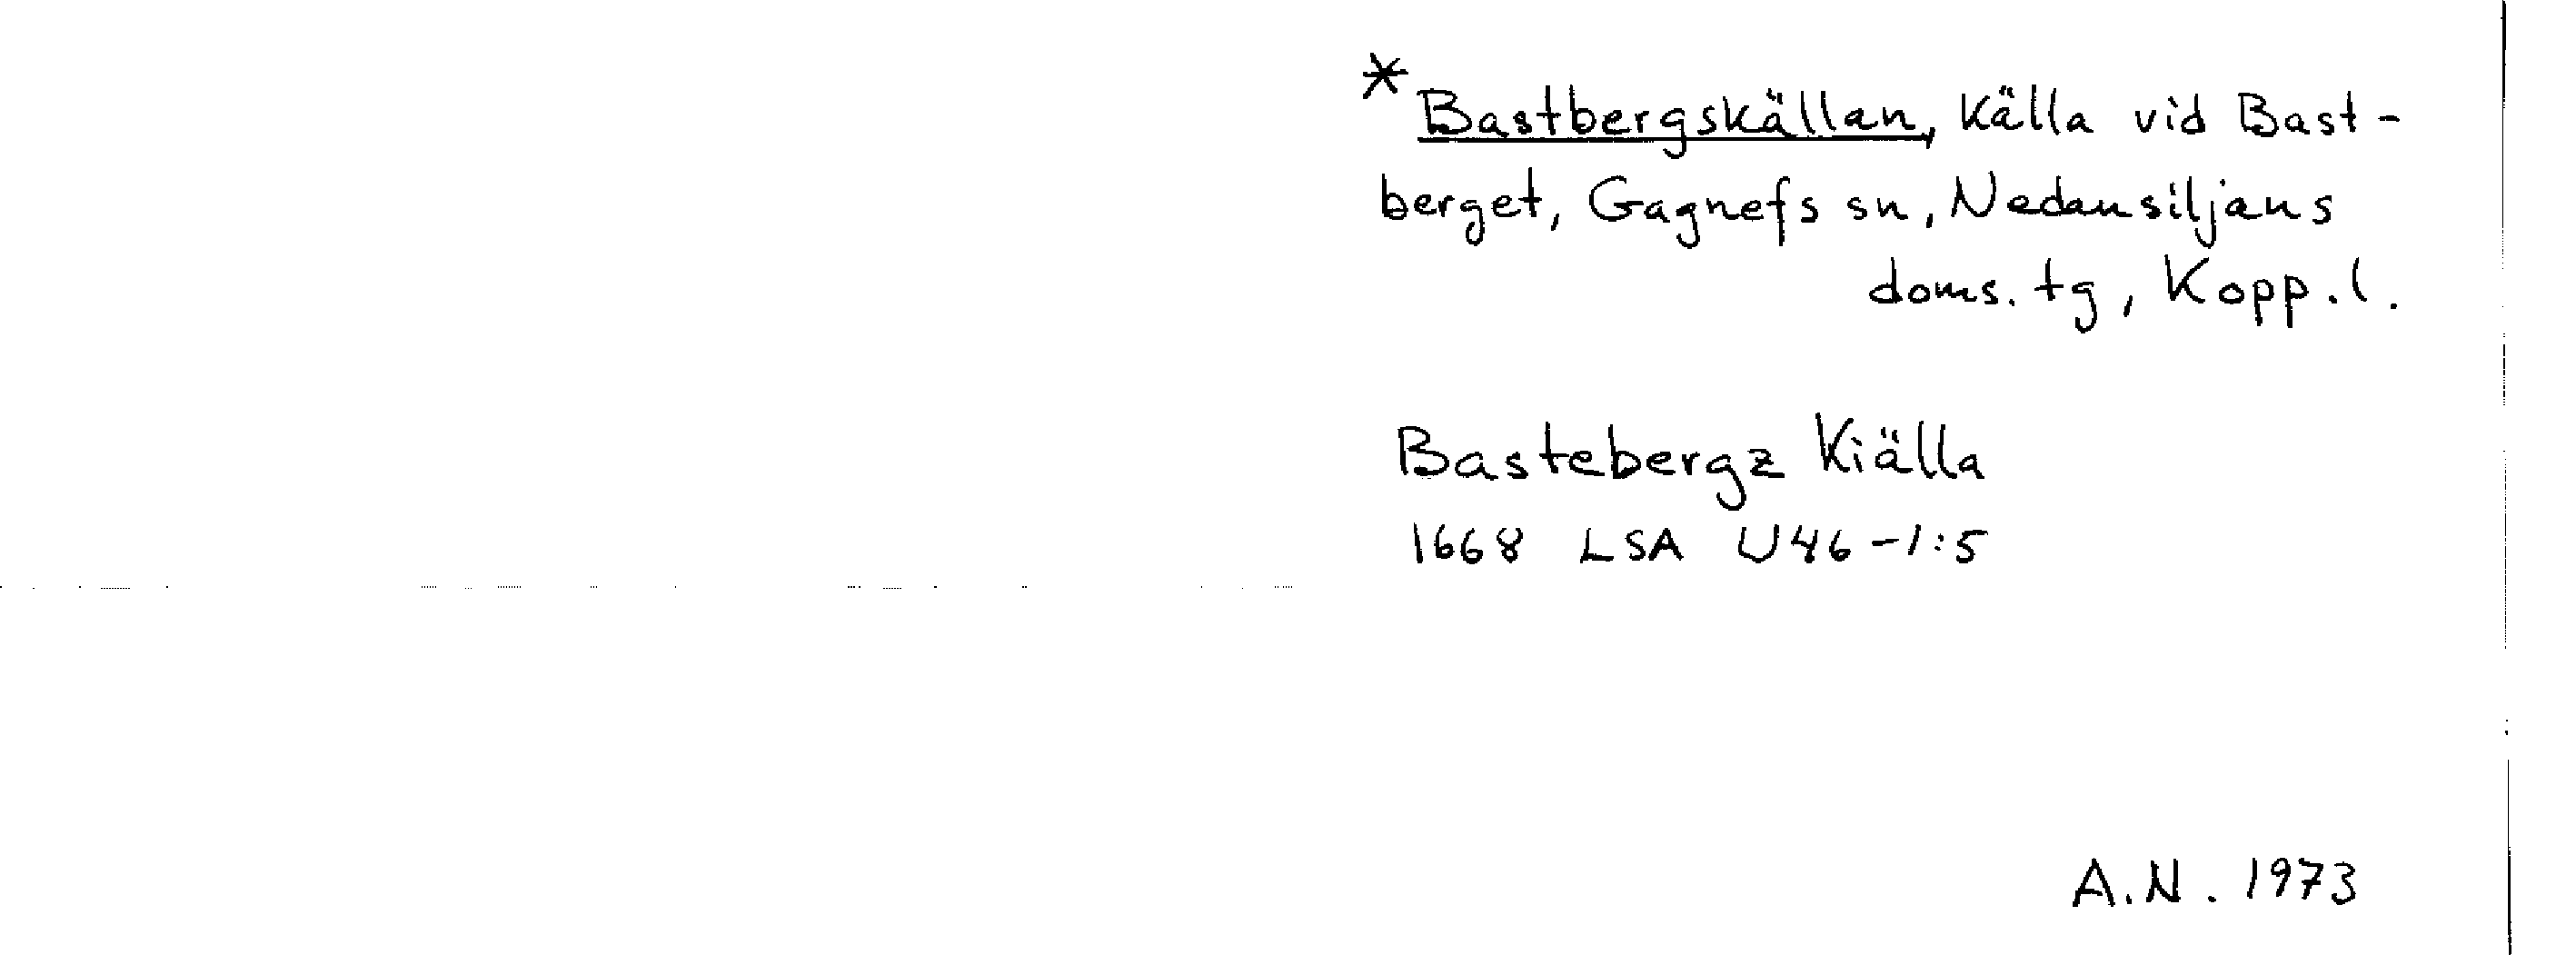 * Bastbergskällan, Källa vid Bast-
berget, Gagnefs sn, Nedansiljans
doms. tg, Kopp. l.
Bastebergz Kiälla
1668 LSA U46-1:5
A.N. 1973